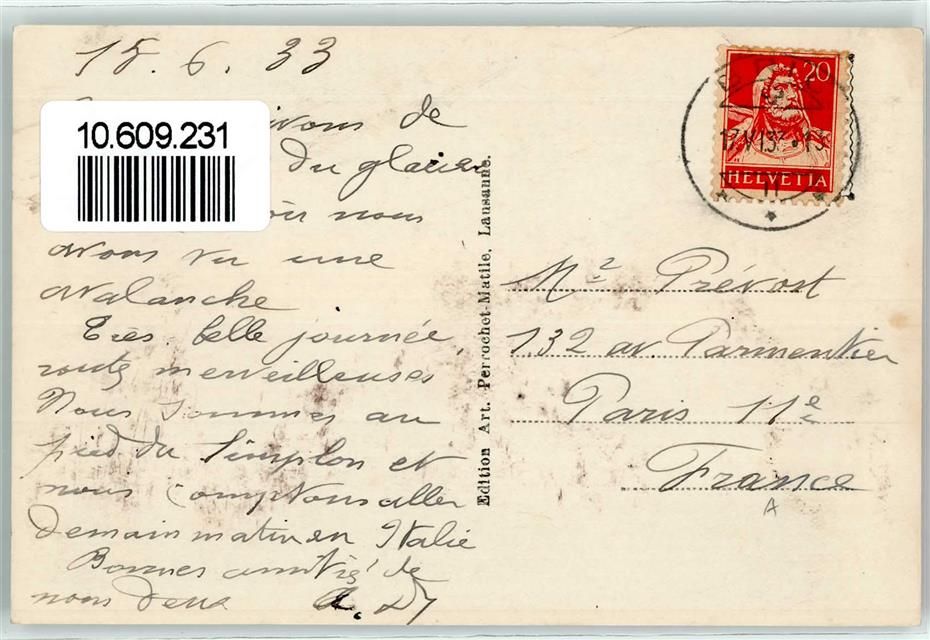 15.6.33
10.609.231
de
du glacier
nous
avons vu une
avalanche
Très belle journée,
routes merveilleuses
Nous sommes au
pied du Simplon et
nous comptons aller
demain matin en Italie
Bonnes amitiés de
nous deux
Edition Art. Perrochet-Matile, Lausanne.
20
HELVETIA
Mr Prévost
132 av. Parmentier
Paris 11e
France
A